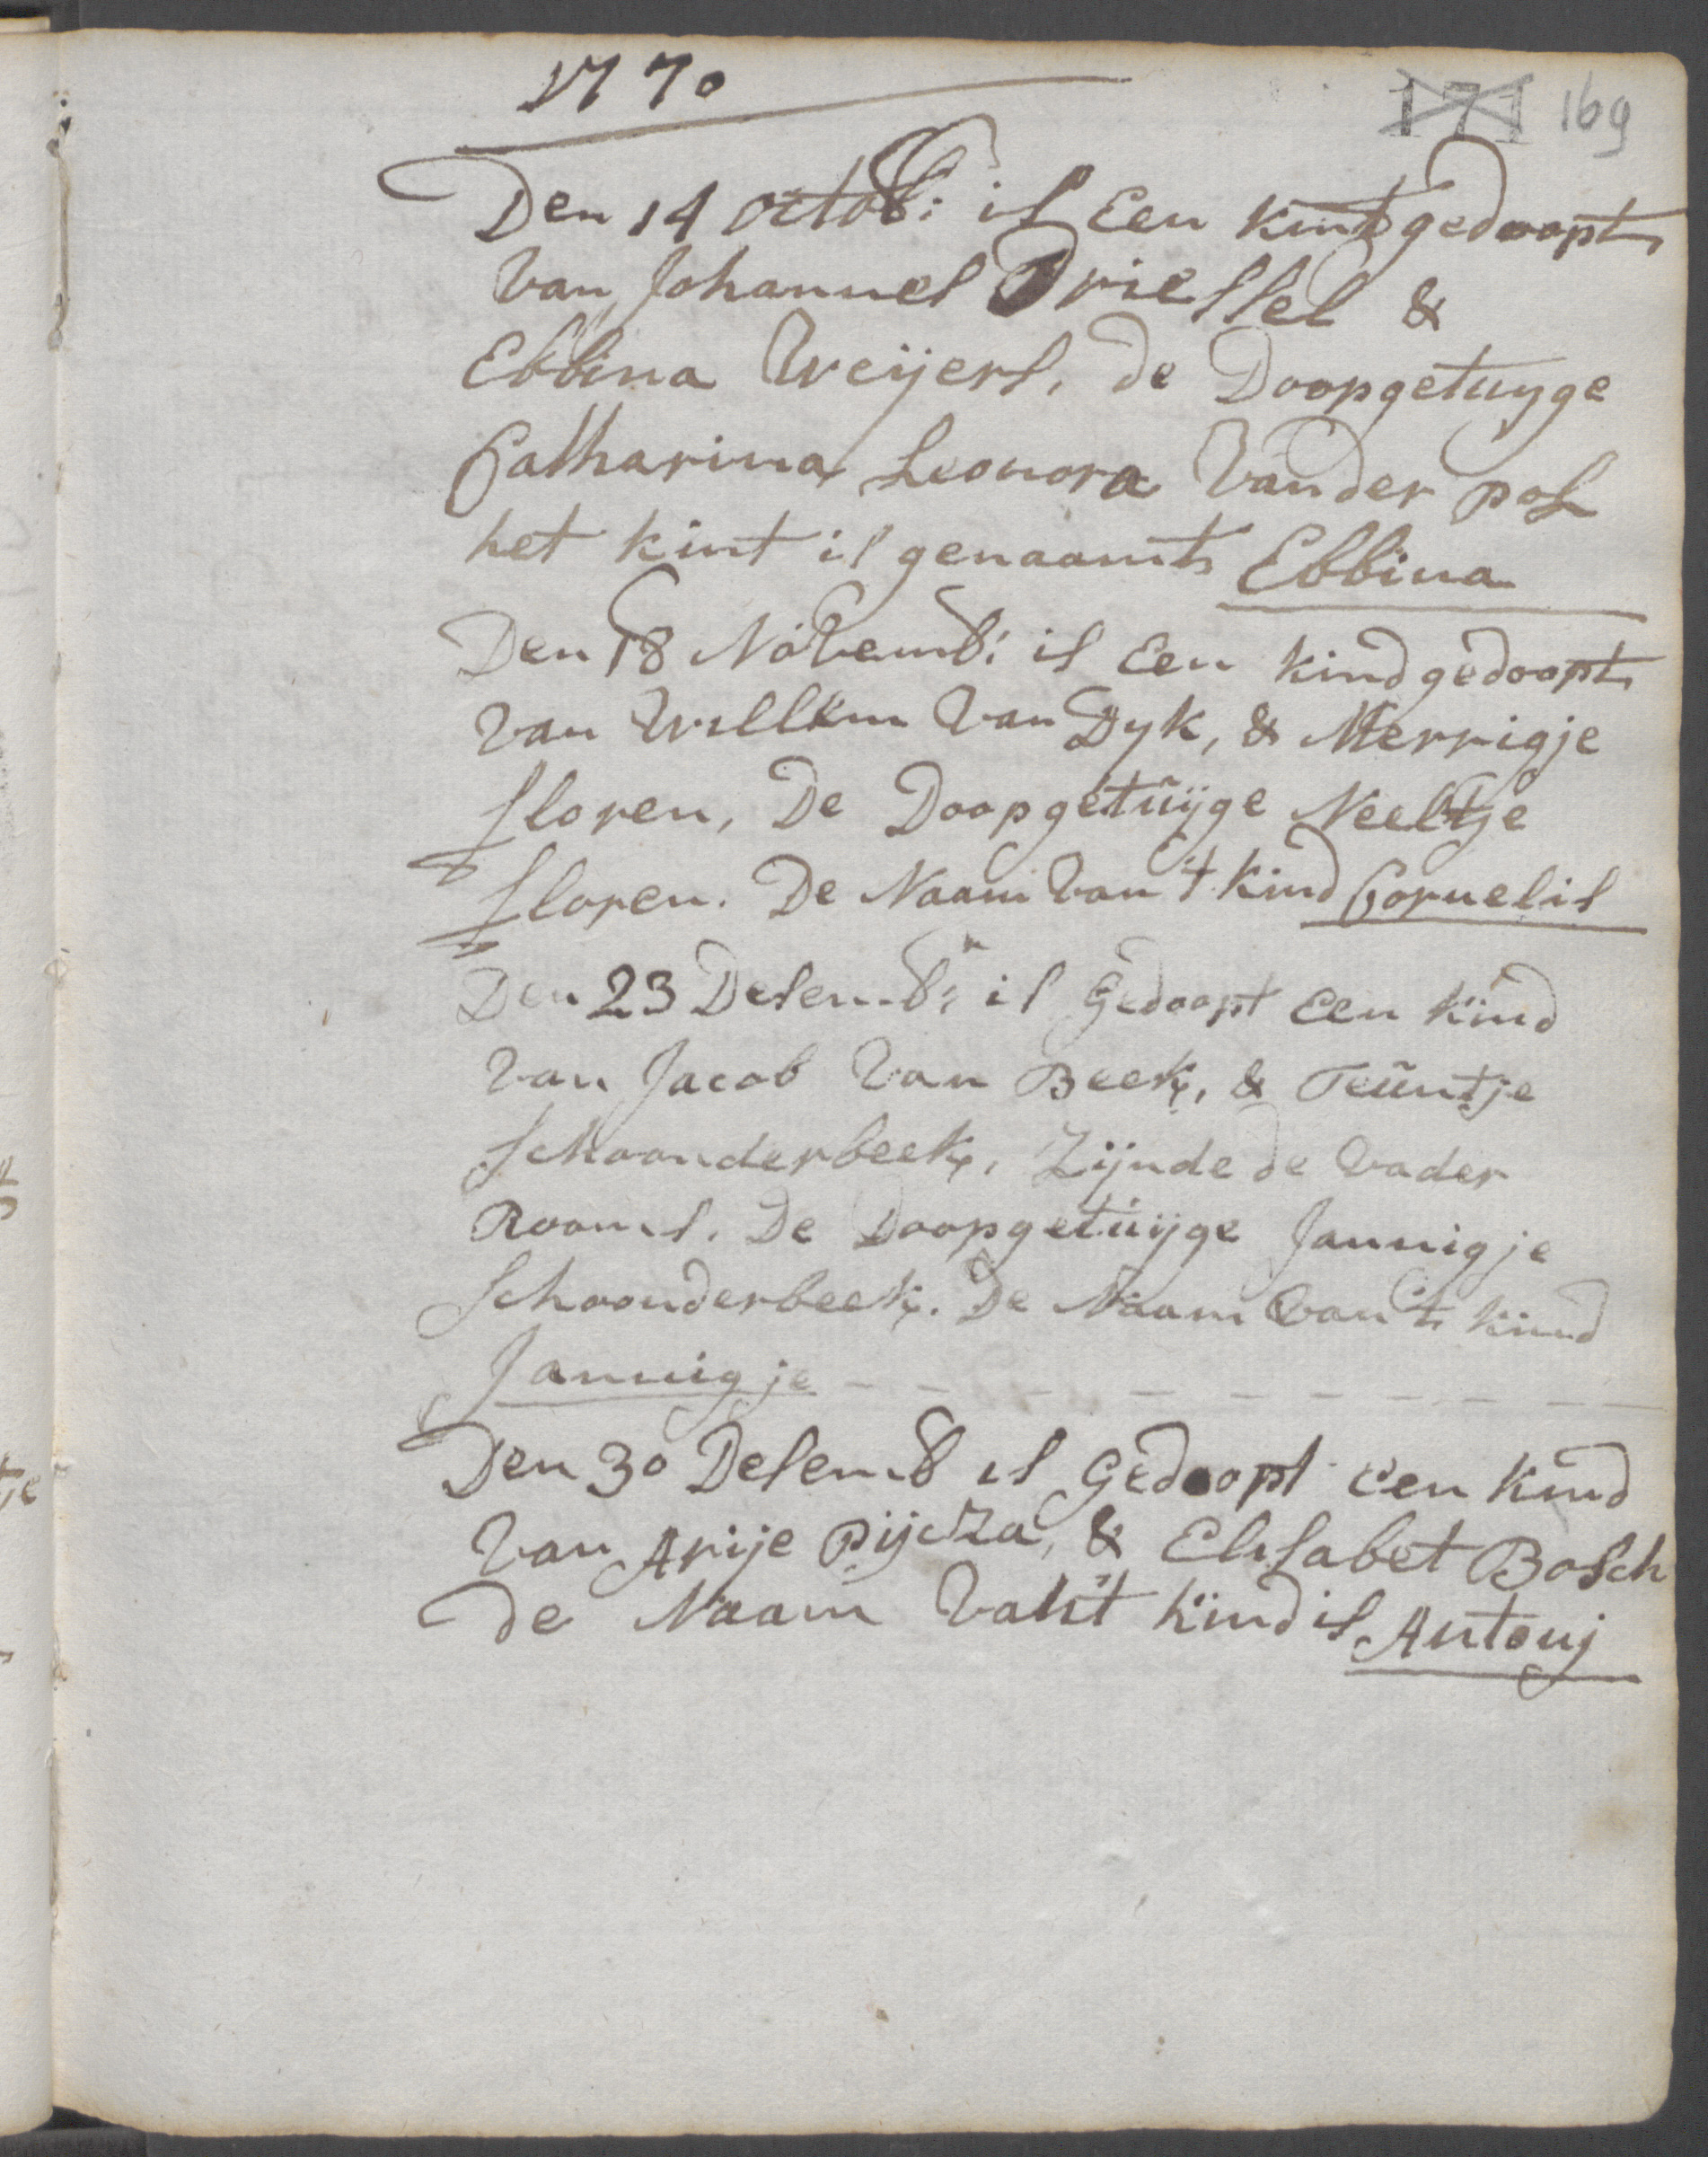 1770
171 169
Den 14 octob: is Een kint gedoopt
Van Johannes Driessel &
Ebbina Weijers, de Doopgetuyge
Catharina Leonora Vander pol
het kint is genaamt Ebbina
Den 18 Novemb: is Een kind gedoopt
Van Willem Van Dyk, & Merrigje
floren, De Doopgetuijge Neeltje
floren. De Naam Van 't kind Cornelis
Den 23 Desemb: is Gedoopt Een kind
Van Jacob Van Beek, & Teuntje
Schoonderbeek, Zijnde de Vader
Rooms. De Doopgetuijge Jannigje
Schoonderbeek. De Naam Van't kind
Jannigje
Den 30 Desemb is Gedoopt een kind
Van Arije pijcza, & Elisabet Bosch
de Naam Van't kind is Antonj